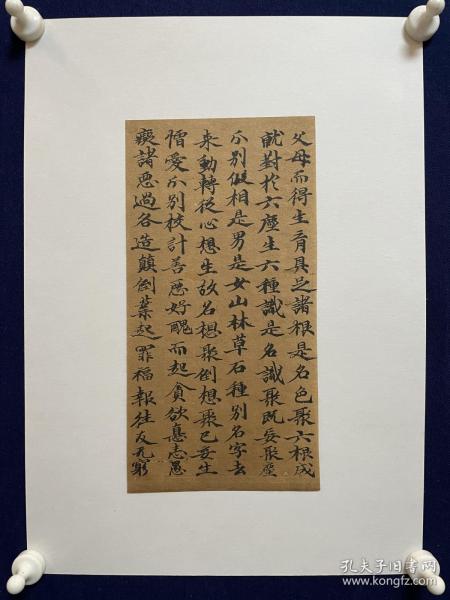 父母而得生育具足諸根是名色聚六根成
就對於六塵生六種識是名識聚既妄聚塵
分別假相是男是女山林草石種別名字去
来動轉從心想生故名想聚倒想聚已妄生
憎愛分别校計善惡好醜而起貪欲恚愚
癡諸惡過各造顛倒業起罪福報往反无窮
孔夫子旧书网
www.kongfz.com